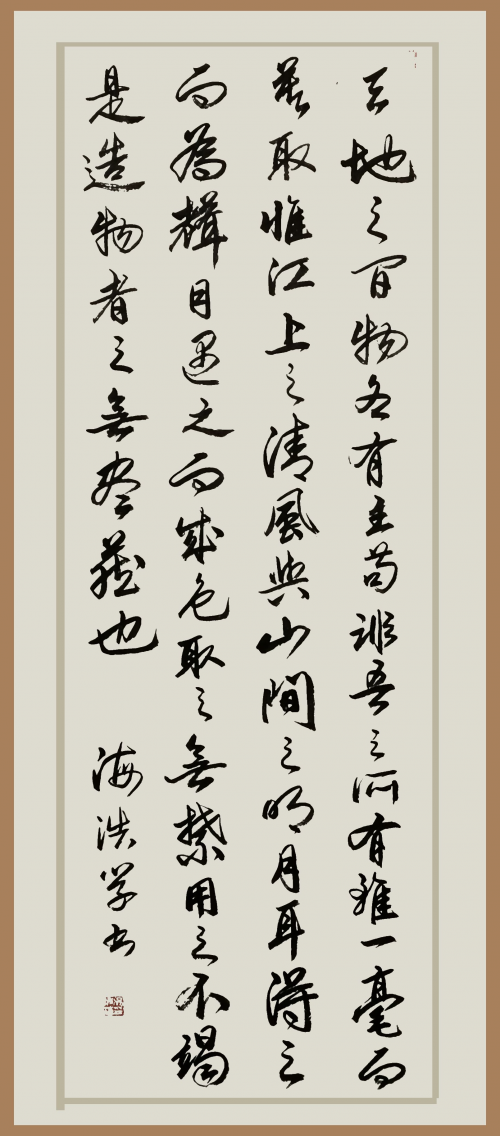 天地之間物各有主苟非吾之所有雖一毫而
莫取惟江上之清風與山間之明月耳得之
而為聲目遇之而成色取之無禁用之不竭
是造物者之無盡藏也
海浩学书